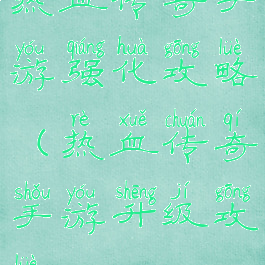 热血传奇手
yóu qiáng huà gōng lüè
游强化攻略
rè xuè chuán qí
（热血传奇
shǒu yóu shēng jí gōng
手游升级攻
lüè